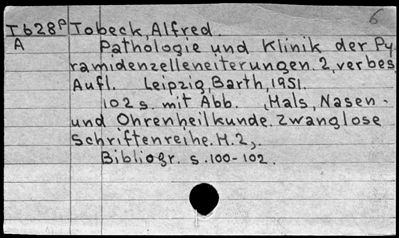 6
T628p Tobeck, Alfred.
A Pathologie und Klinik der Py
ramidenzelleneiterungen. 2, verbes
Aufl. Leipzig, Barth, 1951.
102 s. mit Abb. (Hals, Nasen-
und Ohrenheilkunde. Zwanglose
Schriftenreihe. H. 2).
Bibliogr. s. 100-102.